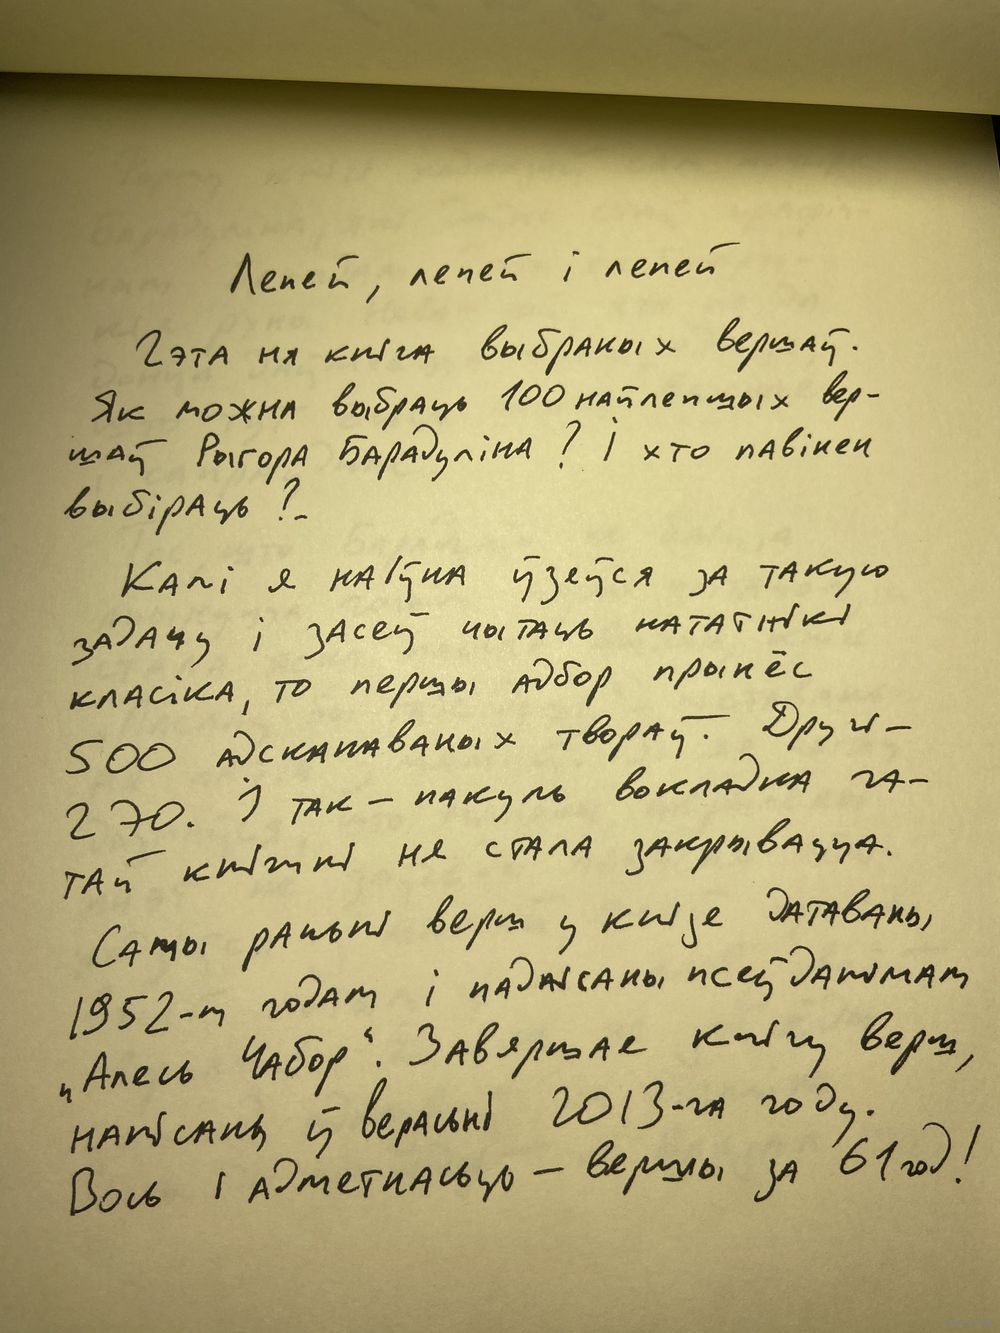 Лепей, лепей і лепей
Гэта ня кніга выбраных вершаў.
Як можна выбраць 100 найлепшых вер-
шаў Рыгора Барадуліна? І хто павінен
выбіраць?
Калі я наіўна ўзяўся за такую
задачу і засеў чытаць нататнікі
класіка, то першы адбор прынёс
500 адсканаваных твораў. Другі –
270. І так – пакуль вокладка га-
тай кніжкі не стала закрывацца.
Самы раньні верш у кнізе датаваны
1952-м годам і падпісаны псеўданімам
„Алесь Чабор“. Завяршае кнігу верш,
напісаны ў верасьні 2013-га году.
Вось і адметнасьць – вершы за 61 год!